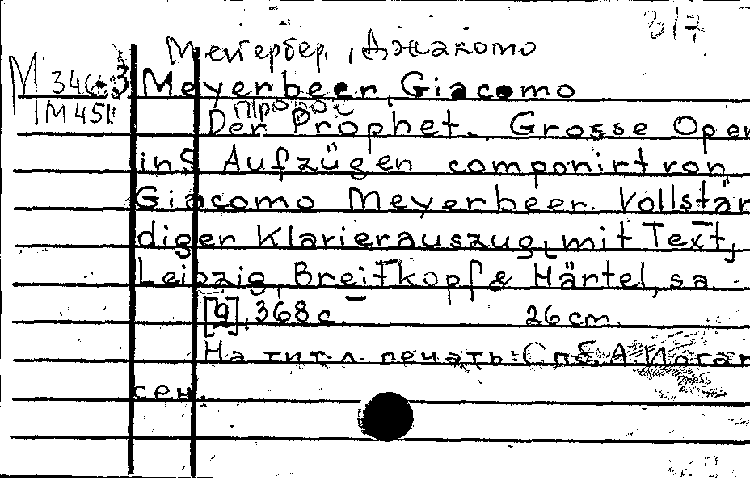 3/7
Мейербер, Джакомо
M 346-3 Meyerbeer, Giacomo
M 451 Пророк
Der Prophet. Grosse Oper
in 5 Aufzügen componirt von
Giacomo Meyerbeer. Vollstän
diger Klavierauszug mit Text,
Leipzig, Breitkopf & Härtel, s.a.
[4], 368 c. 26 cm.
На тит. л. печать: Спб. А. Иоган
сен.